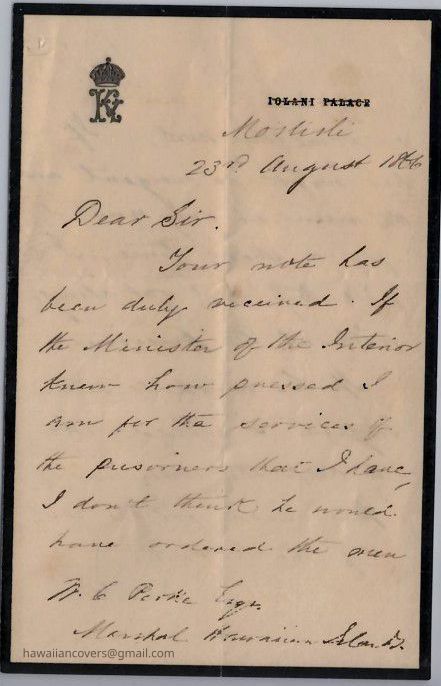 IOLANI PALACE
23rd August
Dear Sir.
Your note has
been duly received. If
the Minister of the Interior
knew how pressed I
am for the services of
the prisoners that I have,
I don't think he would
have ordered the men
W. C. Parke Esqr.
Marshal Hawaiian Islands.
hawaiiancovers@gmail.com